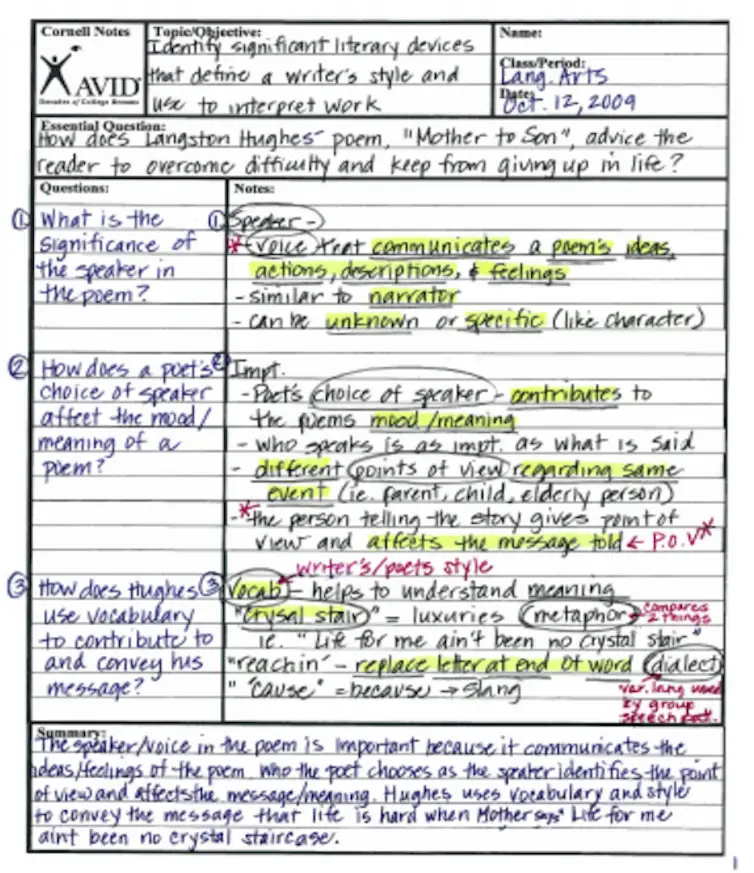 Cornell Notes
AVID
Decades of College Dreams
Topic/Objective:
Identify significant literary devices
that define a writer's style and
use to interpret work
Name:
Class/Period:
Lang. Arts
Date:
Oct. 12, 2009
Essential Question:
How does Langston Hughes' poem, "Mother to Son", advice the
reader to overcome difficulty and keep from giving up in life?
Questions:
① What is the
significance of
the speaker in
the poem?
② How does a poet's
choice of speaker
affect the mood/
meaning of a
poem?
③ How does Hughes
use vocabulary
to contribute to
and convey his
message?
Notes:
① Speaker -
* - voice that communicates a poem's ideas,
actions, descriptions, & feelings
- similar to narrator
- can be unknown or specific (like character)
② Impt.
- Poet's choice of speaker - contributes to
the poems mood/meaning
- who speaks is as impt. as what is said
- different points of view regarding same
event (ie. parent, child, elderly person)
- *the person telling the story gives point of
view and affects the message told ← P.O.V *
writer's/poets style
③ Vocab - helps to understand meaning
"crysal stair" = luxuries (metaphor) → compares
2 things
ie. "Life for me ain't been no crystal stair"
"reachin' - replace letter at end of word (dialect)
" 'cause" = because → slang
var. lang used
by group
speech
Summary:
The speaker/voice in the poem is important because it communicates the
ideas/feelings of the poem. Who the poet chooses as the speaker identifies the point
of view and affects the message/meaning. Hughes uses vocabulary and style
to convey the message that life is hard when Mother says "Life for me
aint been no crystal staircase.